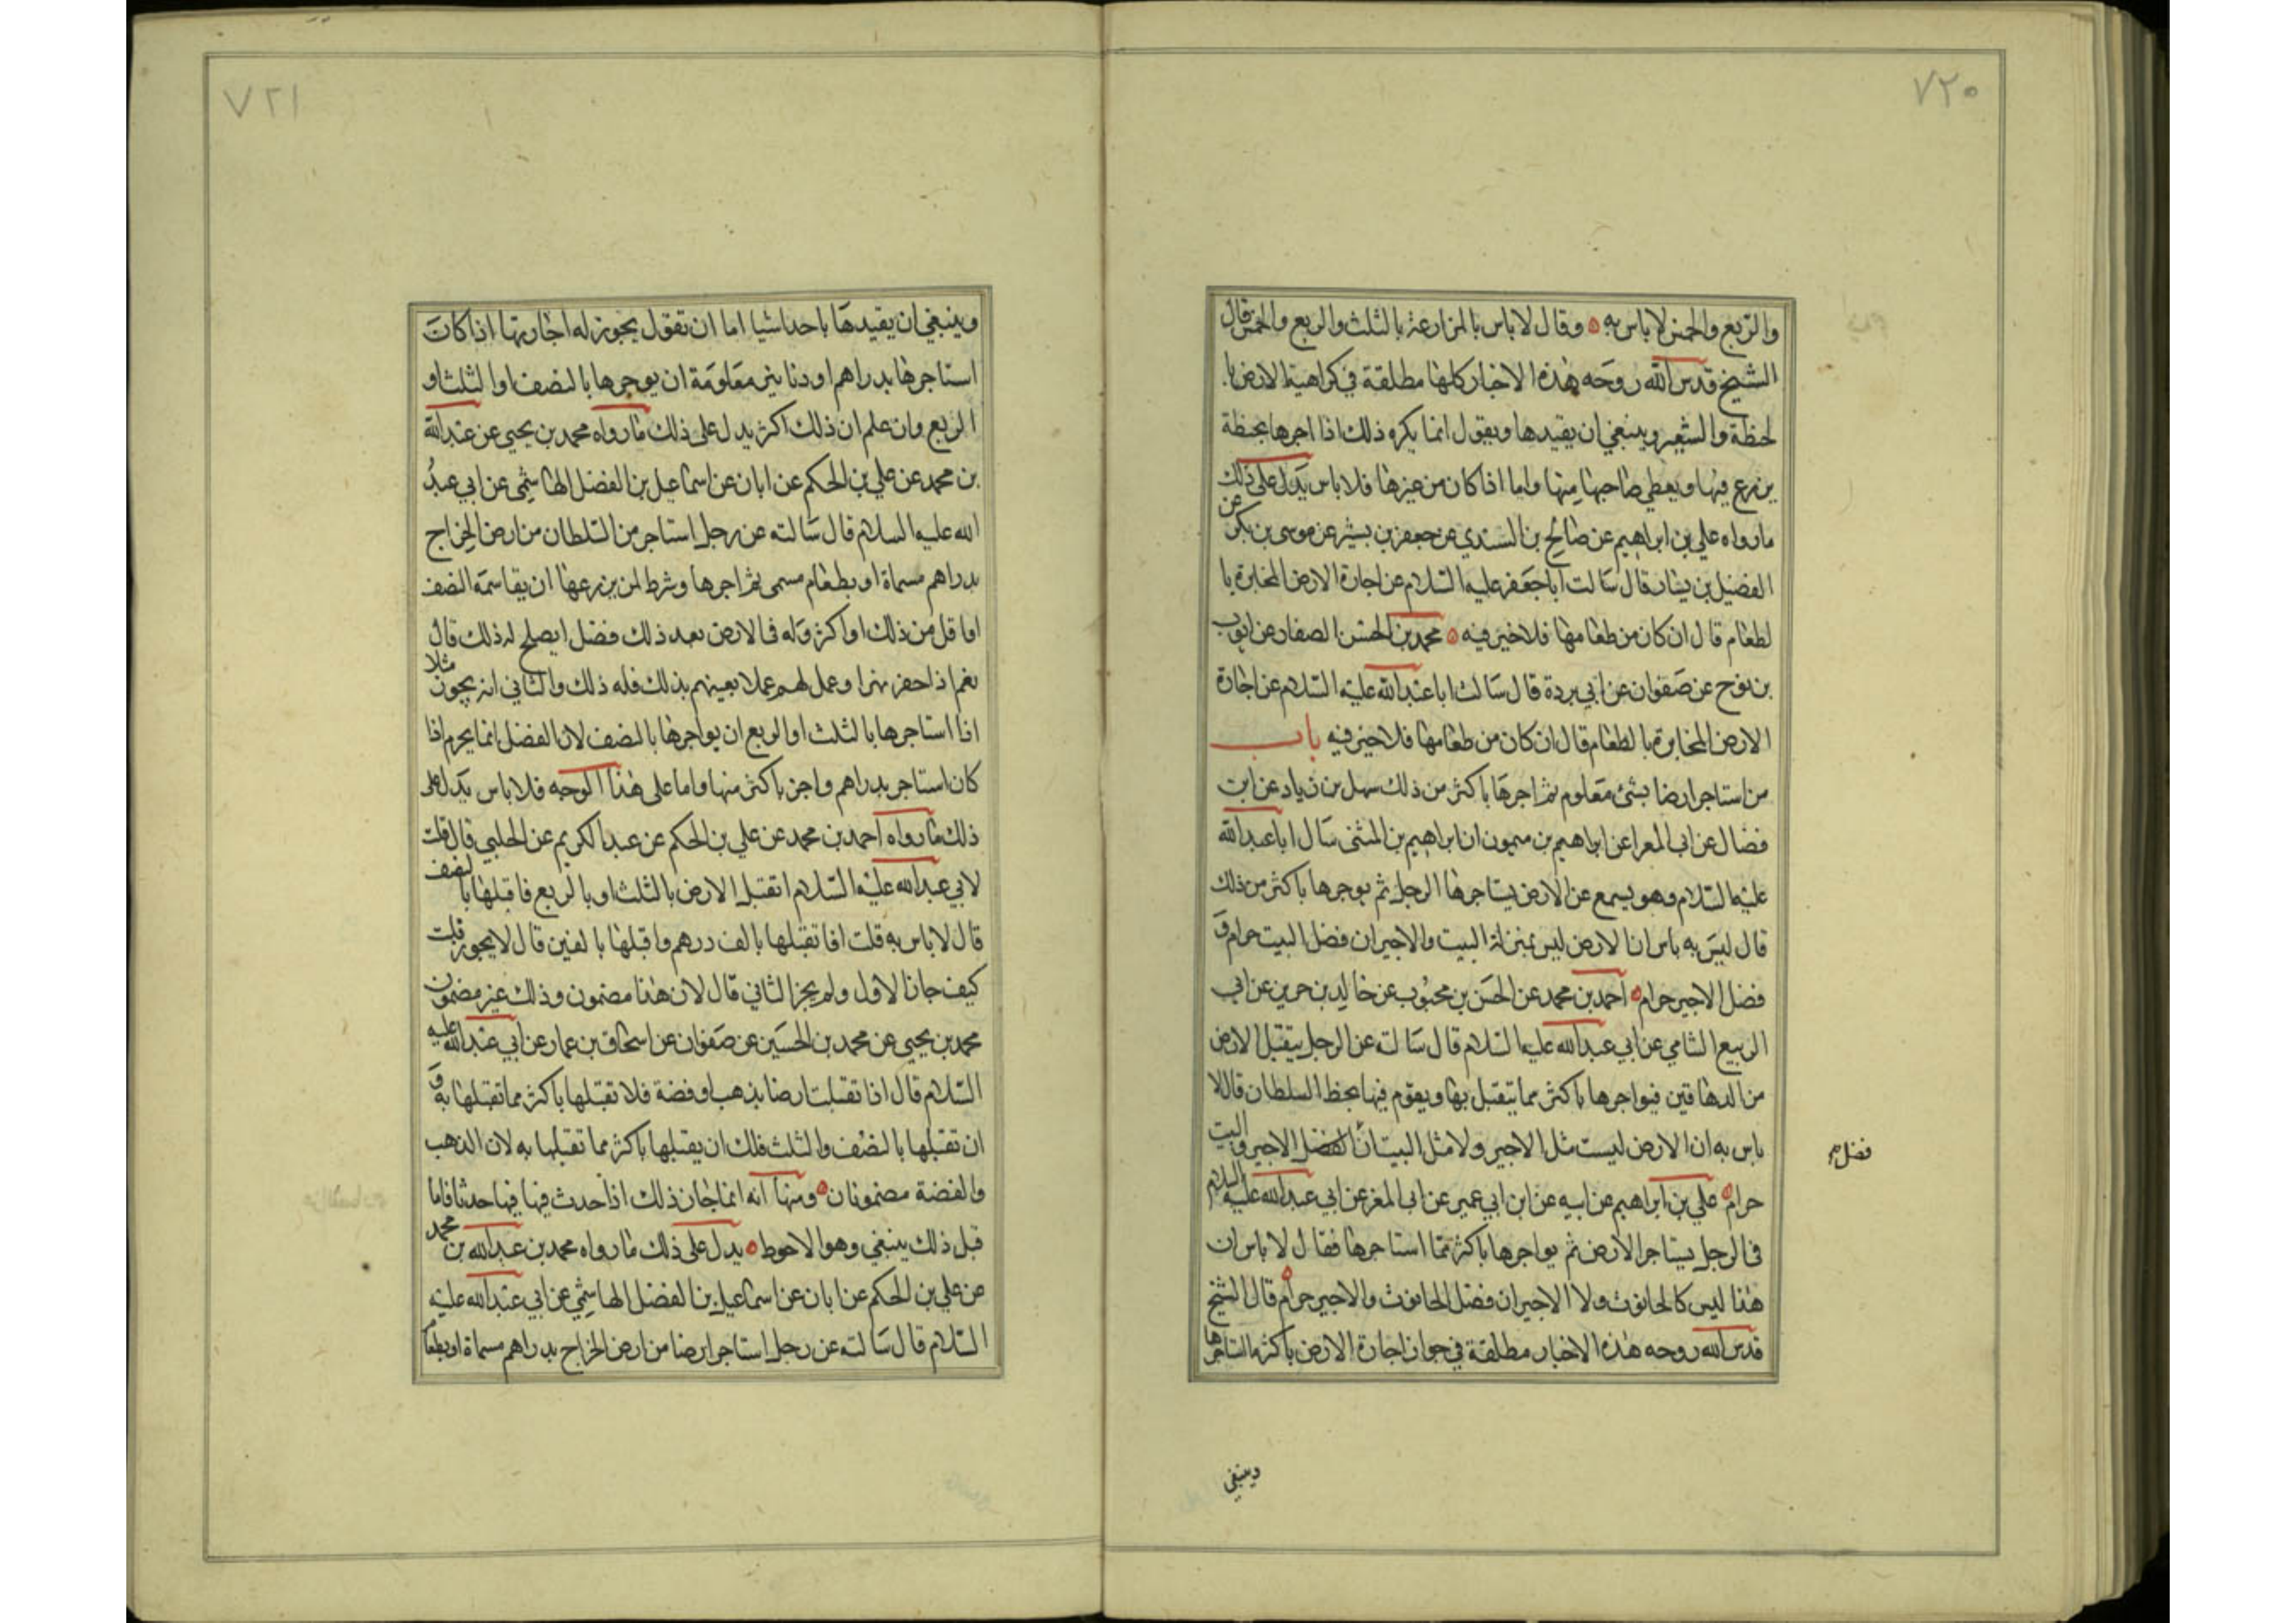 ٧٢٠
والربع والخمس لا باس به وقال لا باس بالمزارعة بالثلث والربع والخمس قال
الشيخ قدس الله روحه هذه الاخبار كلها مطلقة في كراهية الارض با
لحنطة والشعير وينبغي ان يقيدها ويقول انما يكره ذلك اذا اجرها بحنطة
يزرع فيها ويعطي صاحبها منها واما اذا كان من غيرها فلا باس يدل على ذلك
ما رواه علي بن ابراهيم عن صالح بن السندي عن جعفر بن بشير عن موسى بن بكر عن
الفضيل بن يسار قال سالت ابا جعفر عليه السلام عن اجارة الارض المخابرة با
لطعام قال ان كان من طعامها فلا خير فيه محمد بن الحسن الصفار عن ايوب
بن نوح عن صفوان عن ابي بردة قال سالت ابا عبد الله عليه السلام عن اجارة
الارض المخابرة بالطعام قال ان كان من طعامها فلا خير فيه باب
من استاجر ارضا بشئ معلوم ثم اجرها باكثر من ذلك سهل بن زياد عن ابن
فضال عن ابي المعرا عن ابراهيم بن ميمون ان ابراهيم بن المثنى سال ابا عبد الله
عليه السلام وهو يسمع عن الارض يستاجرها الرجل ثم يوجرها باكثر من ذلك
قال ليس به باس ان الارض ليس بمنزلة البيت والاجير ان فضل البيت حرام و
فضل الاجير حرام احمد بن محمد عن الحسن بن محبوب عن خالد بن جرير عن ابي
الربيع الشامي عن ابي عبد الله عليه السلام قال سالته عن الرجل يتقبل الارض
من الدهاقين فيواجرها باكثر مما يتقبل بها ويقوم فيها بحظ السلطان قال لا
باس به ان الارض ليست مثل الاجير ولا مثل البيت ان فضل الاجير والبيت
فضل
حرام علي بن ابراهيم عن ابيه عن ابن ابي عمير عن ابي المغرا عن ابي عبد الله عليه السلام
في الرجل يستاجر الارض ثم يواجرها باكثر مما استاجرها فقال لا باس ان
هذا ليس كالحانوت ولا الاجير ان فضل الحانوت والاجير حرام قال الشيخ
قدس الله روحه هذه الاخبار مطلقة في جواز اجارة الارض باكثر مما استاجرها
وينبغي
٧٢١
وينبغي ان يقيدها باحد اشيا اما ان تقول يجوز له اجارتها اذا كانت
استاجرها بدراهم او دنانير معلومة ان يوجرها بالنصف او الثلث او
الربع وان علم ان ذلك اكثر يدل على ذلك ما رواه محمد بن يحيى عن عبد الله
بن محمد عن علي بن الحكم عن ابان عن اسماعيل بن الفضل الهاشمي عن ابي عبد
الله عليه السلام قال سالته عن رجل استاجر من السلطان من ارض الخراج
بدراهم مسماة او بطعام مسمى ثم اجرها وشرط لمن يزرعها ان يقاسمه النصف
او اقل من ذلك او اكثر وله في الارض بعد ذلك فضل ايصلح له ذلك قال
نعم اذا حفر نهرا وعمل لهم عملا يعينهم بذلك فله ذلك والثاني انه يجوز مثلا
اذا استاجرها بالثلث او الربع ان يواجرها بالنصف لان الفضل انما يحرم اذا
كان استاجر بدراهم واجر باكثر منها واما على هذا الوجه فلا باس يدل على
ذلك ما رواه احمد بن محمد عن علي بن الحكم عن عبد الكريم عن الحلبي قال قلت
لابي عبد الله عليه السلام اتقبل الارض بالثلث او بالربع فاقبلها بالنصف
قال لا باس به قلت اذا تقبلها بالف درهم واقبلها بالفين قال لا يجوز قلت
كيف جاز الاول ولم يجز الثاني قال لان هذا مضمون وذلك غير مضمون
محمد بن يحيى عن محمد بن الحسين عن صفوان عن اسحاق بن عمار عن ابي عبد الله عليه
السلام قال اذا تقبلت ارضا بذهب او فضة فلا تقبلها باكثر مما تقبلها به و
ان تقبلها بالنصف والثلث فلك ان يقبلها باكثر مما تقبلها به لان الذهب
والفضة مضمونان ومنها انه انما جاز ذلك اذا حدث فيها فيها حدثا فاما
قبل ذلك ينبغي وهو الاحوط يدل على ذلك ما رواه محمد بن عبد الله بن محمد
عن علي بن الحكم عن ابان عن اسماعيل بن الفضل الهاشمي عن ابي عبد الله عليه
السلام قال سالته عن رجل استاجر ارضا من ارض الخراج بدراهم مسماة او بطعام